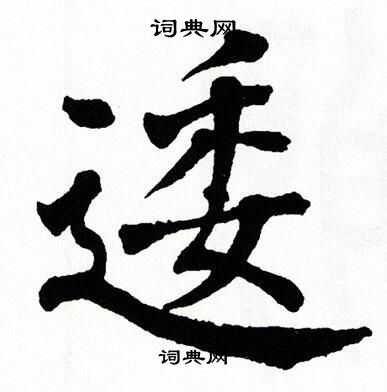 词典网
逶
词典网